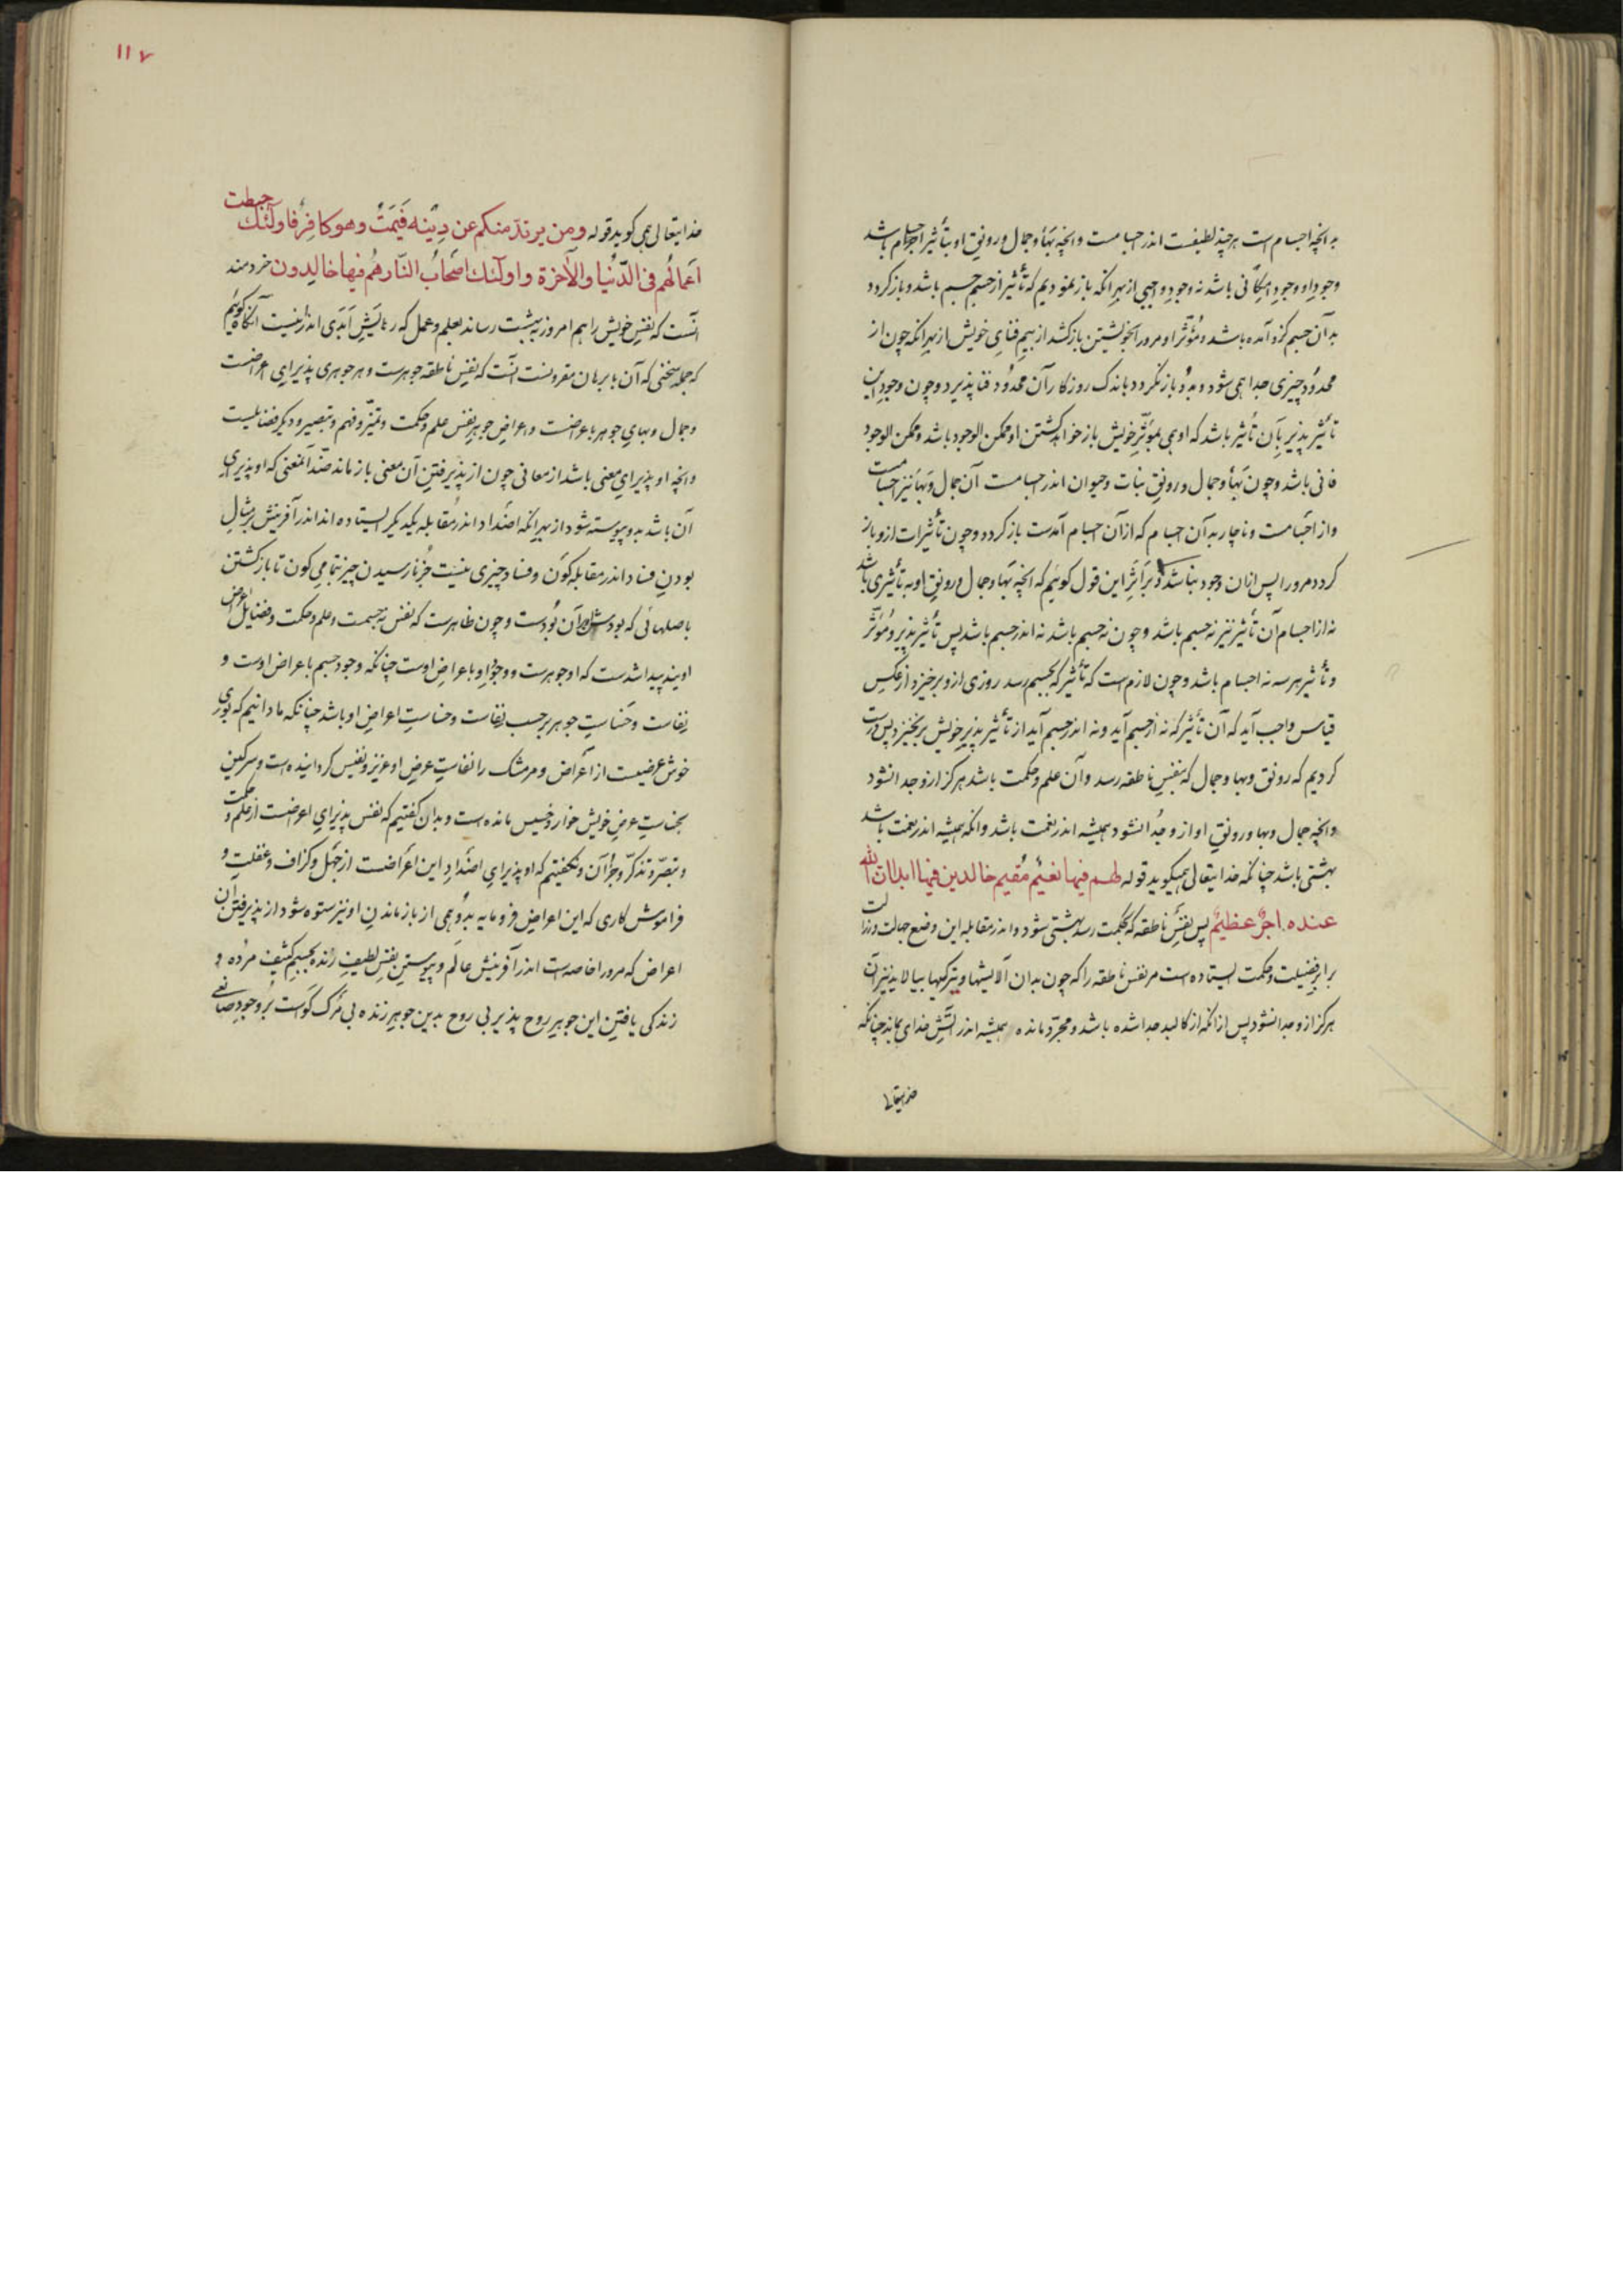 به انچه اجسام است هرچند لطیفست اندر اجسامست و انچه بهأ و جمال و رونق او بتأثیر اجسام باشد
وجود او وجود امکانی باشد نه وجود واجبی از بهر انکه باز نمودیم که تأثیر از جسم جسم باشد و باز کردد
بدآن جسم کزو آمده باشد و مؤثر او مرورا بخویشتن بازکشد از بیم فنای خویش از بهر انکه چون از
محدود چیزی جدا همی شود و بدو باز نکردد باندک روزکار آن محدود فنا پذیرد و چون وجود این
تأثیر پذیر بآن تأثیر باشد که او همی بمؤثر خویش باز خواهد کشتن او ممکن الوجود باشد و ممکن الوجود
فانی باشد و چون بهأ و جمال و رونق نبات و حیوان اندر اجسامست آن جمال و بها نیز اجسامست
و از اجسامست و ناچار به آن اجسام که از آن اجسام آمدست باز کردد و چون تأثیرات ازو باز
کردد مرورا پس ازان وجود نباشد و بر اثر این قول کوئیم که انچه بها و جمال و رونق او به تأثیری باشد
نه از اجسام آن تأثیر نیز نه جسم باشد و چون نه جسم باشد نه اندر جسم باشد پس تأثیر پذیر و مؤثر
و تأثیر هر سه نه اجسام باشد و چون لازم است که تأثیر که بجسم رسد روزی ازو برخیزد از عکس
قیاس واجب آید که آن تأثیر که نه از جسم آید و نه اندر جسم آید از تأثیر پذیر خویش برنخیزد پس درست
کردیم که رونق و بها و جمال که بنفس ناطقه رسد و آن علم و حکمت باشد هرکز ازو جدا نشود
و انچه جمال و بها و رونق او ازو جدا نشود همیشه اندر نعمت باشد و انکه همیشه اندر نعمت باشد
بهشتی باشد چنانکه خدایتعالی همیکوید قوله لهم فیها نعیم مقیم خالدین فیها ابدا ان الله
عنده اجر عظیم پس نفس ناطقه که بحکمت رسد بهشتی شود و اندر مقابله این وضع جهالت و رذالت
برابر فضیلت و حکمت ایستاده است مر نفس ناطقه را که چون بدان آلایشها و تیرکیها بیالاید نیز آن
هرکز ازو جدا نشود پس ازانکه از کالبد جدا شده باشد و مجرد مانده همیشه اندر آتش خدای بماند چنانکه
خدایتعالی
۱۱۷
خدایتعالی همی کوید قوله و من یرتدد منکم عن دینه فیمت و هو کافر فاولئک حبطت
اعمالهم فی الدنیا و الآخرة و اولئک اصحاب النار هم فیها خالدون خردمند
آنست که نفس خویش را هم امروز به بهشت رساند بعلم و عمل که رهایش ابدی اندرینست آنکاه کوئیم
که جمله سخنی که آن ببرهان مقرونست آنست که نفس ناطقه جوهرست و هر جوهری پذیرای اعراضست
و جمال و بهای جوهر باعراضست و اعراض جوهر نفس علم و حکمت و تمیز و فهم و تبصیر و دیکر فضایلست
و انچه او پذیرای معنی باشد از معانی چون از پذیرفتن آن معنی باز ماند ضد آنمعنی که او پذیرای
آن باشد بدو پیوسته شود از بهر انکه اضداد اندر مقابله یکدیکر ایستاده اند اندر آفرینش بر مثال
بودن فساد اندر مقابله کون و فساد چیزی نیست جز نارسیدن چیز بتمامی کون تا بازکشتن
باصلهائی که بودش آن بودست و چون ظاهرست که نفس نه جسمست و علم و حکمت و فضایل اعراض
اویند پیدا شدست که او جوهرست و وجود او باعراض اوست چنانکه وجود جسم باعراض اوست و
نفاست و خساست جوهر برحسب نفاست و خساست اعراض او باشد چنانکه ما دانیم که بوی
خوش عرضیست از اعراض و مر مشک را نفاست عرض او عزیز و نفیس کردانیده است و سرکین
بخساست عرض خویش خوار و خسیس مانده است و بدان کفتیم که نفس پذیرای اعراضست از علم و حکمت
و تبصر و تذکر و جز آن و نکفتیم که او پذیرای اضداد این اعراضست از جهل و کزاف و غفلت و
فراموش کاری که این اعراض فرومایه بدو همی از باز ماندن او نیز ستوه شود از پذیرفتن آن
اعراض که مرورا خاصه است اندر آفرینش عالم و پیوستن نفس لطیف زنده بجسم کثیف مرده و
زندکی یافتن این جوهر روح پذیر بی روح بدین جوهر زنده بی مرک کواست بر وجود صانعی